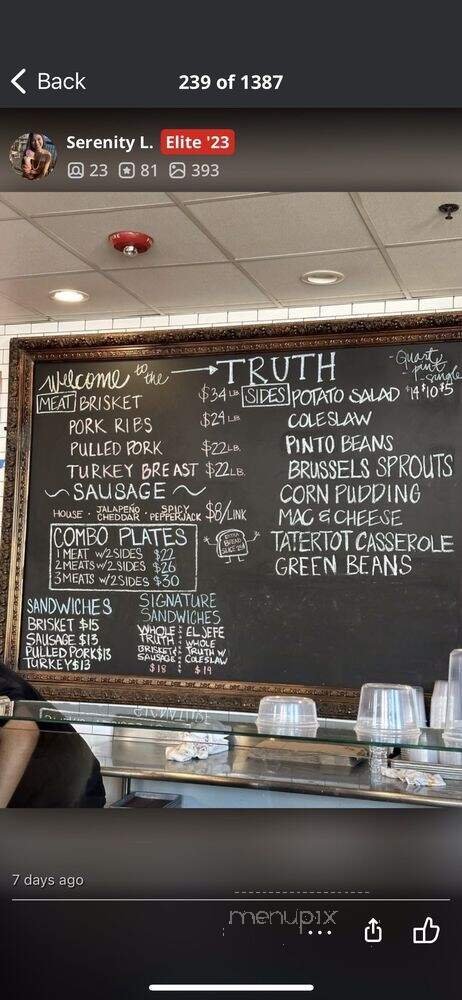 Back
239 of 1387
Serenity L. Elite '23
23 81 393
welcome to the → TRUTH
Quart pint single
MEAT BRISKET $34 LB
PORK RIBS $24 LB
PULLED PORK $22 LB.
TURKEY BREAST $22 LB.
~ SAUSAGE ~
HOUSE · JALAPEÑO CHEDDAR · SPICY PEPPERJACK $8/LINK
SIDES POTATO SALAD $14 $10 $5
COLESLAW
PINTO BEANS
BRUSSELS SPROUTS
CORN PUDDING
MAC & CHEESE
TATERTOT CASSEROLE
GREEN BEANS
COMBO PLATES
1 MEAT W/2SIDES $22
2 MEATS W/2SIDES $26
3 MEATS W/2SIDES $30
BREAD
SANDWICHES
BRISKET $15
SAUSAGE $13
PULLED PORK $13
TURKEY $13
SIGNATURE
SANDWICHES
WHOLE TRUTH
BRISKET & SAUSAGE
$18
EL JEFE
WHOLE TRUTH W/ COLESLAW
$19
7 days ago
menupix